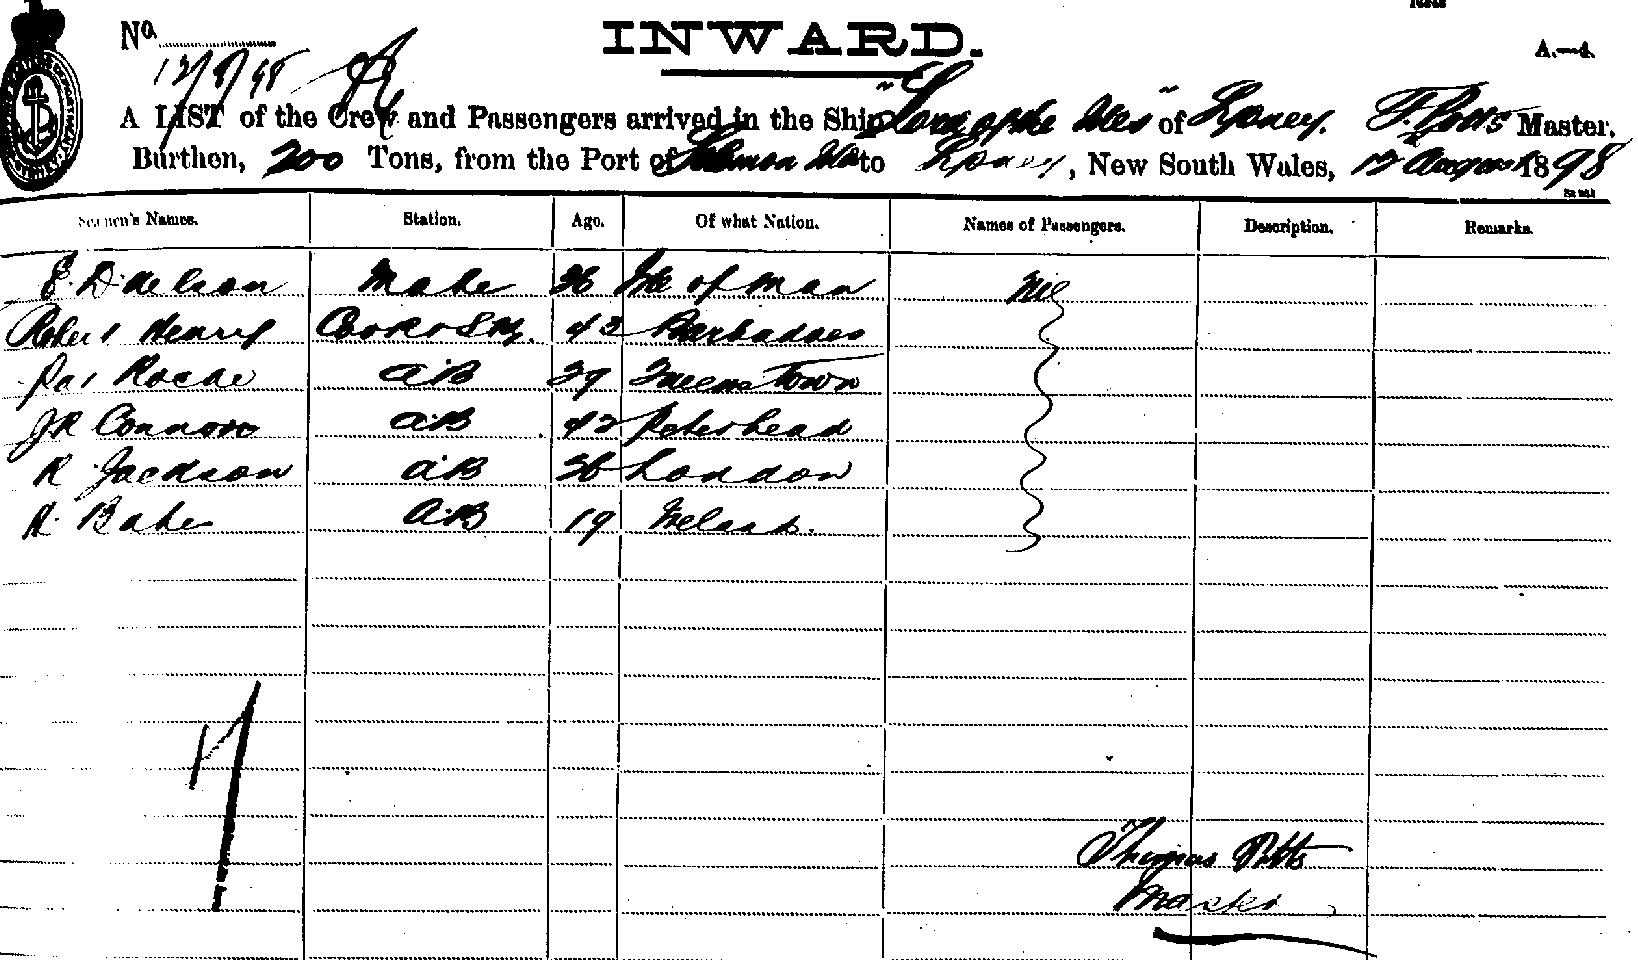 No
INWARD.
A.—4.
12/8/98
A LIST of the Crew and Passengers arrived in the Ship "Lord of the Isles" of Sydney. T. Potts Master,
Burthen, 200 Tons, from the Port of Solomon Isls to Sydney, New South Wales, 12 August 1898
Seamen's Names. Station. Age. Of what Nation. Names of Passengers. Description. Remarks.
Mate 36 Isle of Man Nil
Robert Henry Cook & S 43 Barbadoes
Pat Roche AB 39 Queenstown
JR Connor AB 42 Peterhead
R Jackson AB 36 London
Baker AB 19
7
Thomas Potts
Master